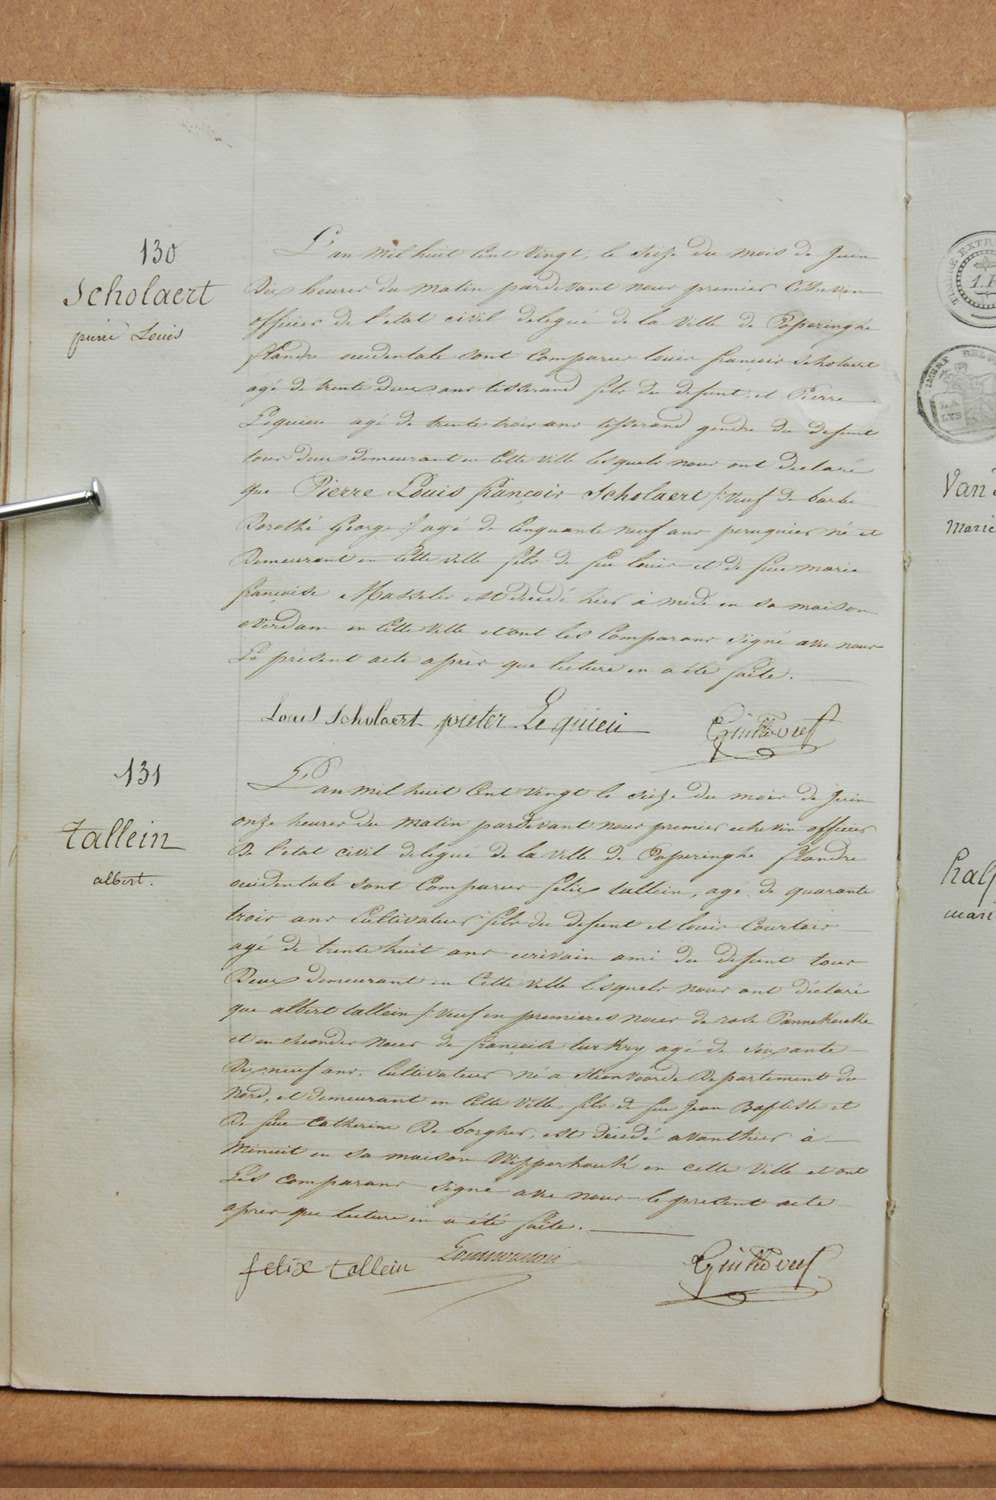 130
Scholaert
pierre Louis
L'an mil huit Cent Vingt, le Seize du mois de Juin
Dix heures du matin pardevant nous premier Echevin
officier de l'etat civil delegué de la Ville de Poperinghe
flandre occidentale sont Comparus louis françois Scholaert
agé de trente deux ans tisserand fils du defunt, et Pierre
Lequieu agé de trente trois ans tisserand gendre du defunt
tous deux demeurant en Cette Ville lesquels nous ont declaré
que Pierre Louis françois Scholaert /: Veuf de barbe
Dorothé George :/ agé de Cinquante neuf ans peruquier né et
Demeurant en Cette ville fils de feu louis et de feue marie
françoise Masselis est decedé hier à midi en sa maison
overdam en Cette Ville et ont les Comparans signé avec nous
Le présent acte après que lecture en a été faite.
Louis Scholaert pieter Le quieu
131
tallein
albert.
L'an mil huit Cent Vingt le Seize du mois de Juin
onze heures du matin pardevant nous premier echevin officier
De l'etat civil delegué de la Ville de Poperinghe flandre
occidentale sont Comparus felix tallein, agé de quarante
trois ans Cultivateur fils du defunt et louis Courtois
agé de trente huit ans ecrivain ami du defunt tous
Deux demeurant en Cette Ville lesquels nous ont déclaré
que albert tallein /: Veuf en premieres noces de rose Pannekoucke
et en secondes noces de françoise turkry agé de soixante
Dix neuf ans, Cultivateur né a Steenvoorde Departement du
Nord, et demeurant en Cette Ville, fils de feu Jean Baptiste et
De feue Catherine De borgher, est décédé avanthier à
Minuit en sa maison Wipperhoek en cette Ville et ont
Les comparans signé avec nous le present acte
après que lecture en a été faite.
felix tallein
Van
Marie
mari